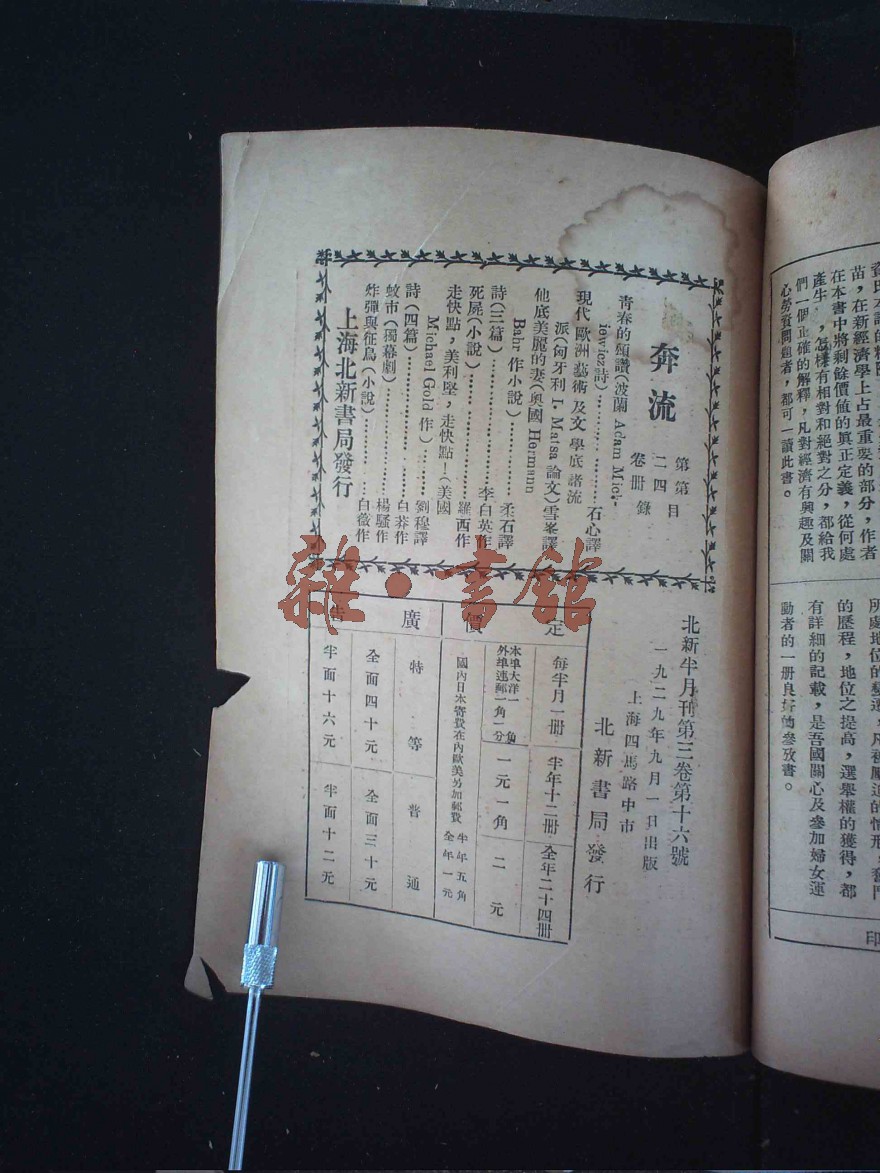 奔流
第二卷
第四册
目錄
青春的頌讚(波蘭 Adam Mick-
iewicz詩)…………石心譯
現代歐洲藝術及文學底諸流
派(匈牙利 I. Matsa 論文)雪峯譯
他底美麗的妻(奧國 Hermann
Bahr 作小說)…………柔石譯
詩(三篇)…………李白英作
死屍(小說)…………羅西作
走快點,美利堅,走快點!(美國
Michael Gold 作)……劉穆譯
詩(四篇)…………白莽作
蚊市(獨幕劇)…………楊騷作
炸彈與征鳥(小說)…………白薇作
上海北新書局發行
北新半月刊第三卷第十六號
一九二九年九月一日出版
上海四馬路中市
北新書局發行
定價
每半月一册
半年十二册
全年二十四册
本埠大洋一角
外埠連郵一角一分
一元一角
二元
國內日本寄費在內歐美另加郵費
半年五角
全年一元
廣告
特等
普通
全面四十元
全面三十元
半面十六元
半面十二元
苗,在新經濟學上占最重要的部分,作者
在本書中將剩餘價值的真正定義,從何處
產生,怎樣有相對和絕對之分,都給我
們一個正確的解釋,凡對經濟有興趣及關
心勞資問題者,都可一讀此書。
所處地位的變遷,凡被壓迫的情形,奮鬥
的歷程,地位之提高,選舉權的獲得,都
有詳細的記載,是吾國關心及參加婦女運
動者的一册良好的參攷書。
印
雜·書館